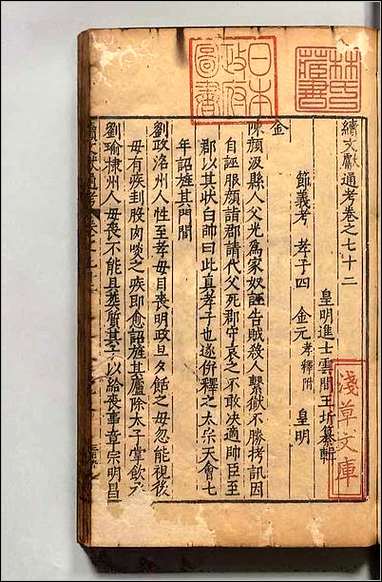 續文獻通考卷之七十二
皇明進士雲間王圻纂輯
節義考 孝子四 金元 孝釋附 皇明
金
陳顏汲縣人父光為家奴誣告賊殺人繫獄不勝拷訊因
自誣服顏詣郡請代父死郡守哀之不敢决適帥臣至
郡以其狀白帥曰此真孝子也遂併釋之太宗天會七
年詔旌其門閭
劉政洺州人性至孝母目喪明政旦夕䑛之母忽能視後
母有疾刲股肉啖之疾即愈詔旌其廬除太子掌飲丞
劉瑜棣州人母喪不能具葬質其子以給喪事章宗明昌
續文獻通考
日本
政府
圖書
林氏
藏書
淺草文庫